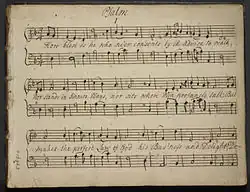 Psalm
1
How blest is he who ne'er consents by ill Advice to walk,
nor stands in sinners Ways, nor sits where Men profanely talk But
makes the perfect Law of God his Business and Delight